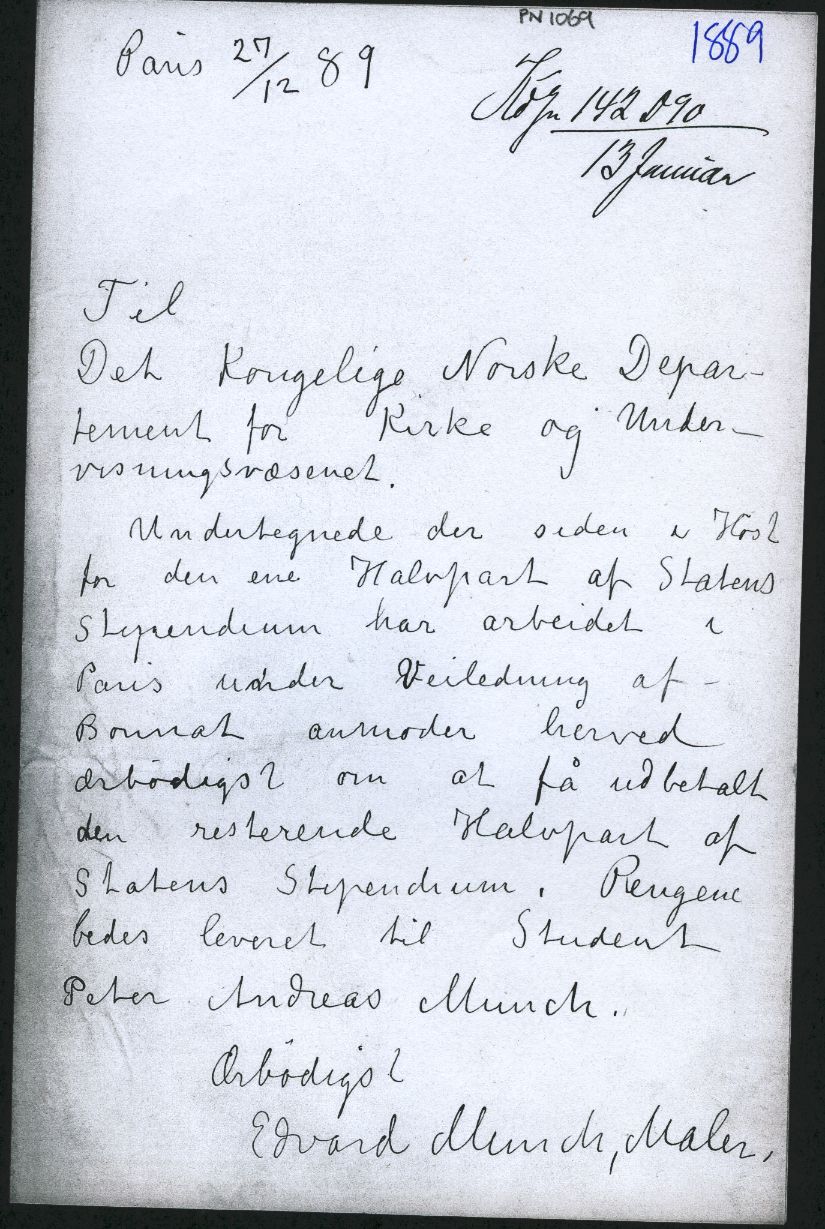 PN1069
1889
Paris 27/12 89
142 D 90
13 Januar
Til
Det Kongelige Norske Depar-
tement for Kirke og Under-
visningsvæsenet.
Undertegnede der siden i Høst
for den ene Halvpart af Statens
Stipendium har arbeidet i
Paris under Veiledning af -
Bonnat anmoder herved
ærbødigst om at få udbetalt
den resterende Halvpart af
Statens Stipendium. Pengene
bedes leveret til Student
Peter Andreas Munch.
Ærbødigst
Edvard Munch, Maler.